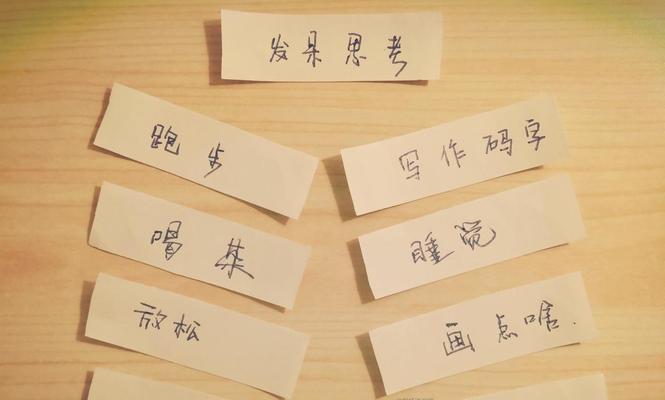 发呆思考
跑步
写作码字
喝茶
睡觉
放松
画点啥.